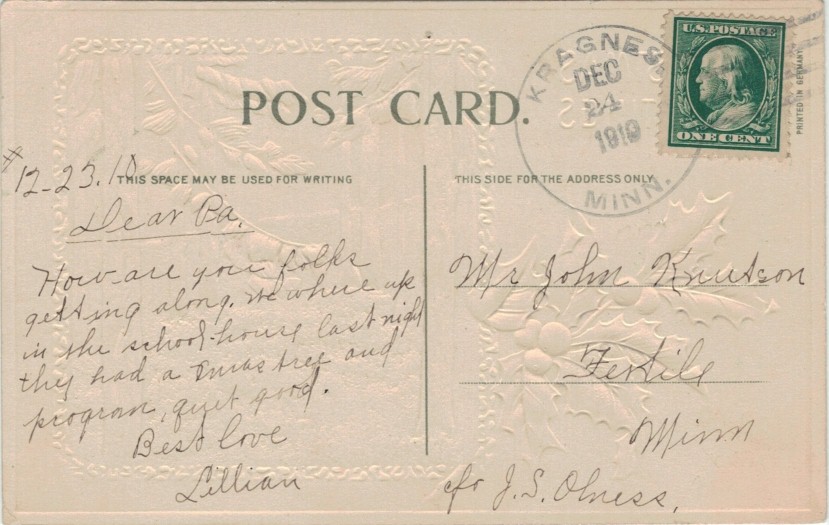 POST CARD.
KRAGNES
DEC
24
1910
MINN.
U.S. POSTAGE
ONE CENT
PRINTED IN GERMANY
THIS SPACE MAY BE USED FOR WRITING
THIS SIDE FOR THE ADDRESS ONLY
12-23.10
Dear Pa.
How are you folks
getting along. we where up
in the school-house last night
they had a Xmas tree and
program, quet good.
Best love
Lillian
Mr John Knutson
Fertile
Minn
c/o J.S. Olness.